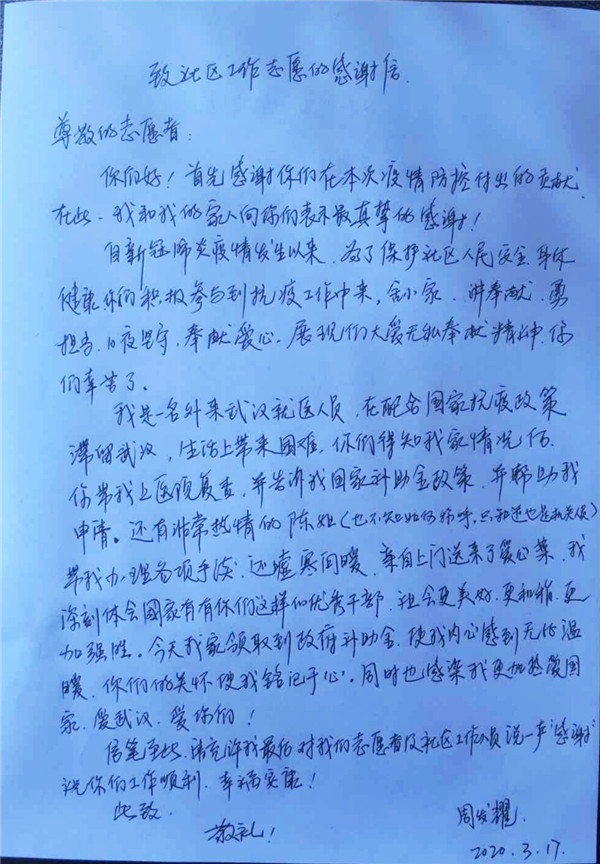 致社区工作志愿的感谢信
尊敬的志愿者：
你们好！首先感谢你们在本次疫情防控付出的贡献，
在此，我和我的家人向你们表示最真挚的感谢！
自新冠肺炎疫情发生以来，为了保护社区人民安全、身体
健康，你们积极参与到抗疫工作中来，舍小家、讲奉献、勇
担当、日夜坚守，奉献爱心，展现们大爱无私奉献精神，你
们辛苦了。
我是一名外来武汉就医人员，在配合国家抗疫政策
滞留武汉，生活上带来困难，你们得知我家情况后，
你带我上医院复查，并告诉我国家补助金政策，并帮助我
申请。还有非常热情的陈姐（也不知如何称呼，只知道也是机关人员）
带我办理各项手续，还嘘寒问暖，亲自上门送来了爱心菜，我
深刻体会国家有有你们这样的优秀干部，社会更美好、更和谐、更
加强胜。今天我家领取到政府补助金，使我内心感到无比温
暖，你们的关怀使我铭记于心。同时也感染我更加热爱国
家、爱武汉、爱你们！
信笔至此，请允许我最后对我们志愿者及社区工作人员说一声“感谢”
祝你们工作顺利、幸福安康！
此致
敬礼！
周发耀
2020.3.17.